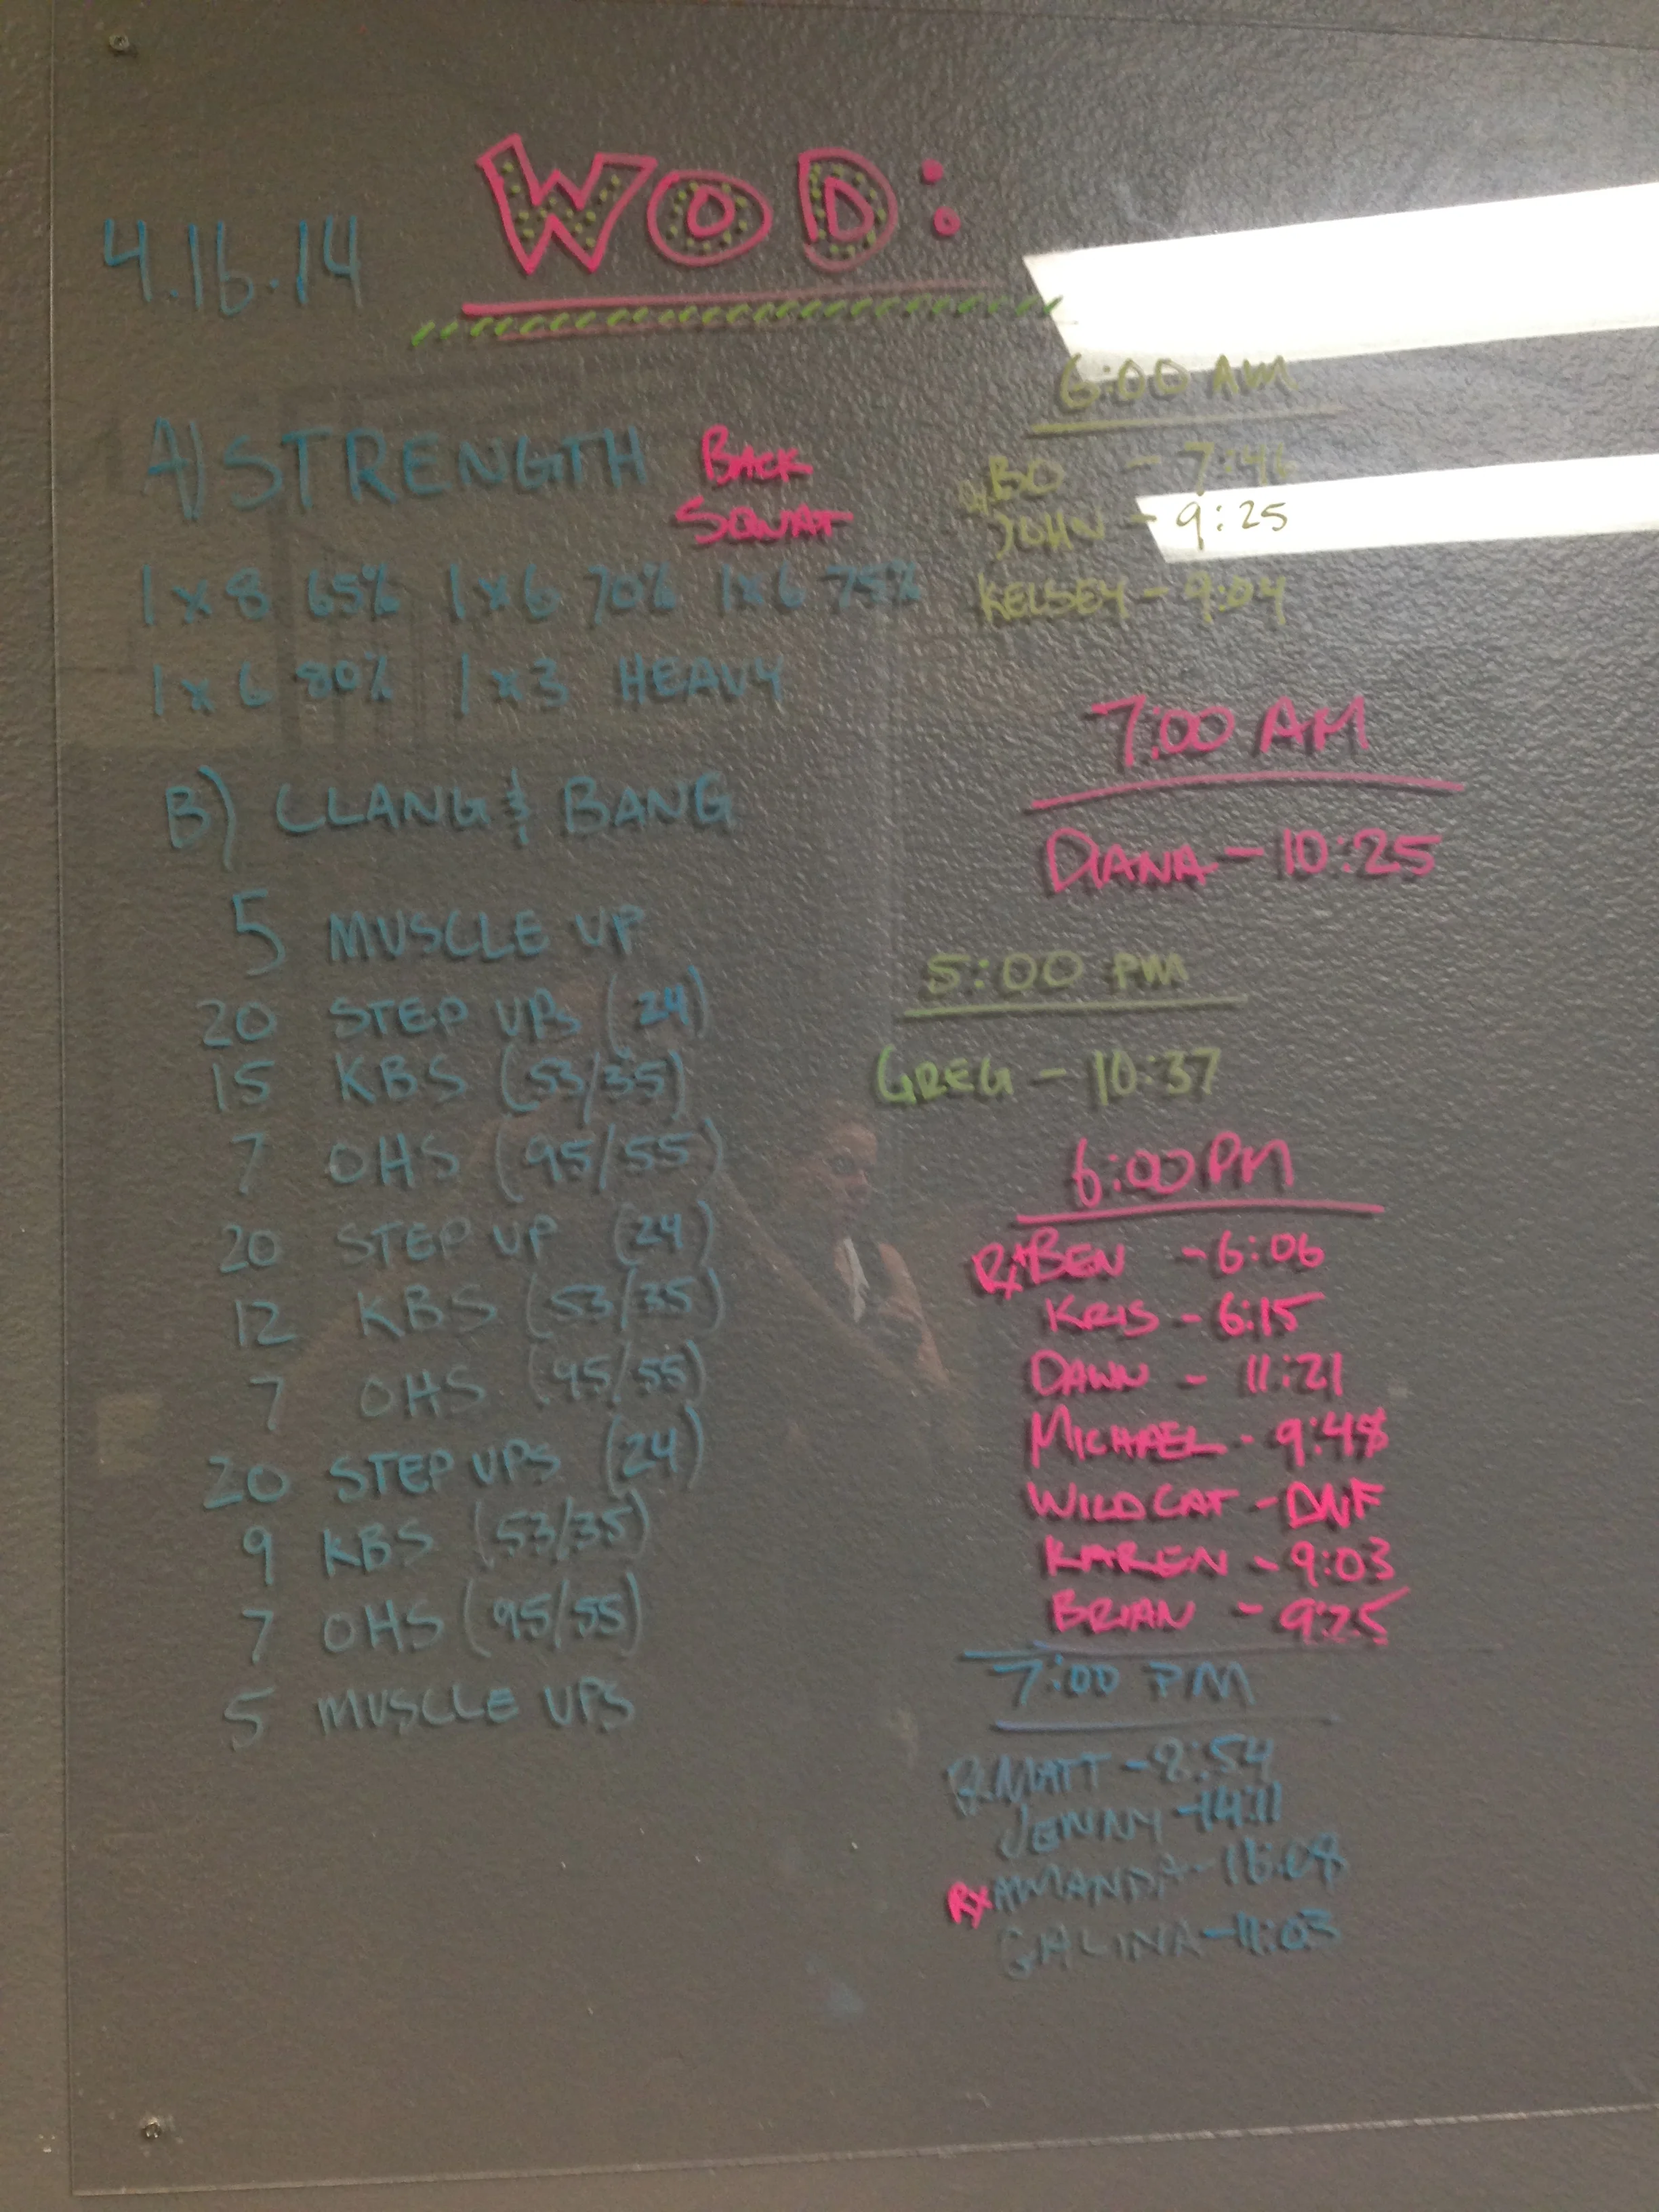 WOD:
4.16.14
A) STRENGTH BACK SQUAT
1x8 65% 1x6 70% 1x6 75%
1x6 80% 1x3 HEAVY
B) CLANG & BANG
5 MUSCLE UP
20 STEP UPS (24)
15 KBS (53/35)
7 OHS (95/55)
20 STEP UP (24)
12 KBS (53/35)
7 OHS (95/55)
20 STEP UPS (24)
9 KBS (53/35)
7 OHS (95/55)
5 MUSCLE UPS
6:00 AM
BO - 7:46
JOHN - 9:25
KELSEY - 9:04
7:00 AM
DIANA - 10:25
5:00 PM
GREG - 10:37
6:00 PM
RX BEN - 6:06
KRIS - 6:15
DAWN - 11:21
MICHAEL - 9:48
WILDCAT - DNF
KAREN - 9:03
BRIAN - 9:25
7:00 PM
RX MATT - 8:54
JENNY - 14:11
RX AMANDA -
GALINA - 11:03